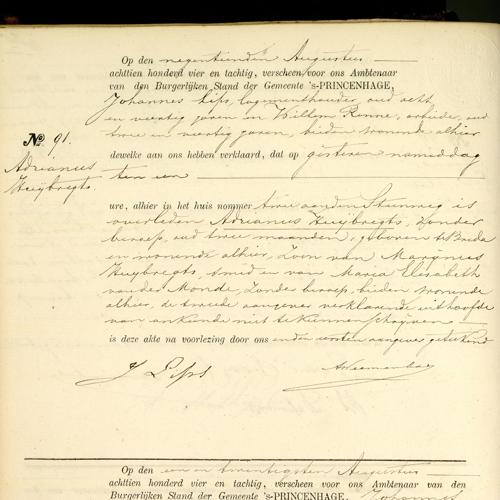 Op den negentienden Augustus
achttien honderd vier en tachtig, verscheen voor ons Ambtenaar
van den Burgerlijken Stand der Gemeente 's-PRINCENHAGE,
Johannes Lips, logementhouder, oud acht
en veertig jaren en Willem Renne, arbeider, oud
twee en veertig jaren, beiden wonende alhier
No. 91.
Adrianus
Huijbregts.
dewelke aan ons hebben verklaard, dat op gisteren namiddag
ten een
ure, alhier in het huis nommer twee aan den Steenweg is
overleden Adrianus Huijbregts, zonder
beroep, oud twee maanden, geboren te Breda
en wonende alhier, Zoon van Marijnus
Huijbregts, smid en van Maria Elisabeth
van der Monde, zonder beroep, beiden wonende
alhier, de tweede aangever verklarende uit hoofde
van onkunde niet te kunnen schrijven
is deze akte na voorlezing door ons en den eersten aangever geteekend
J Lips
Op den een en twintigsten Augustus
achttien honderd vier en tachtig, verscheen voor ons Ambtenaar van den
Burgerlijken Stand der Gemeente 's-PRINCENHAGE, Johannes